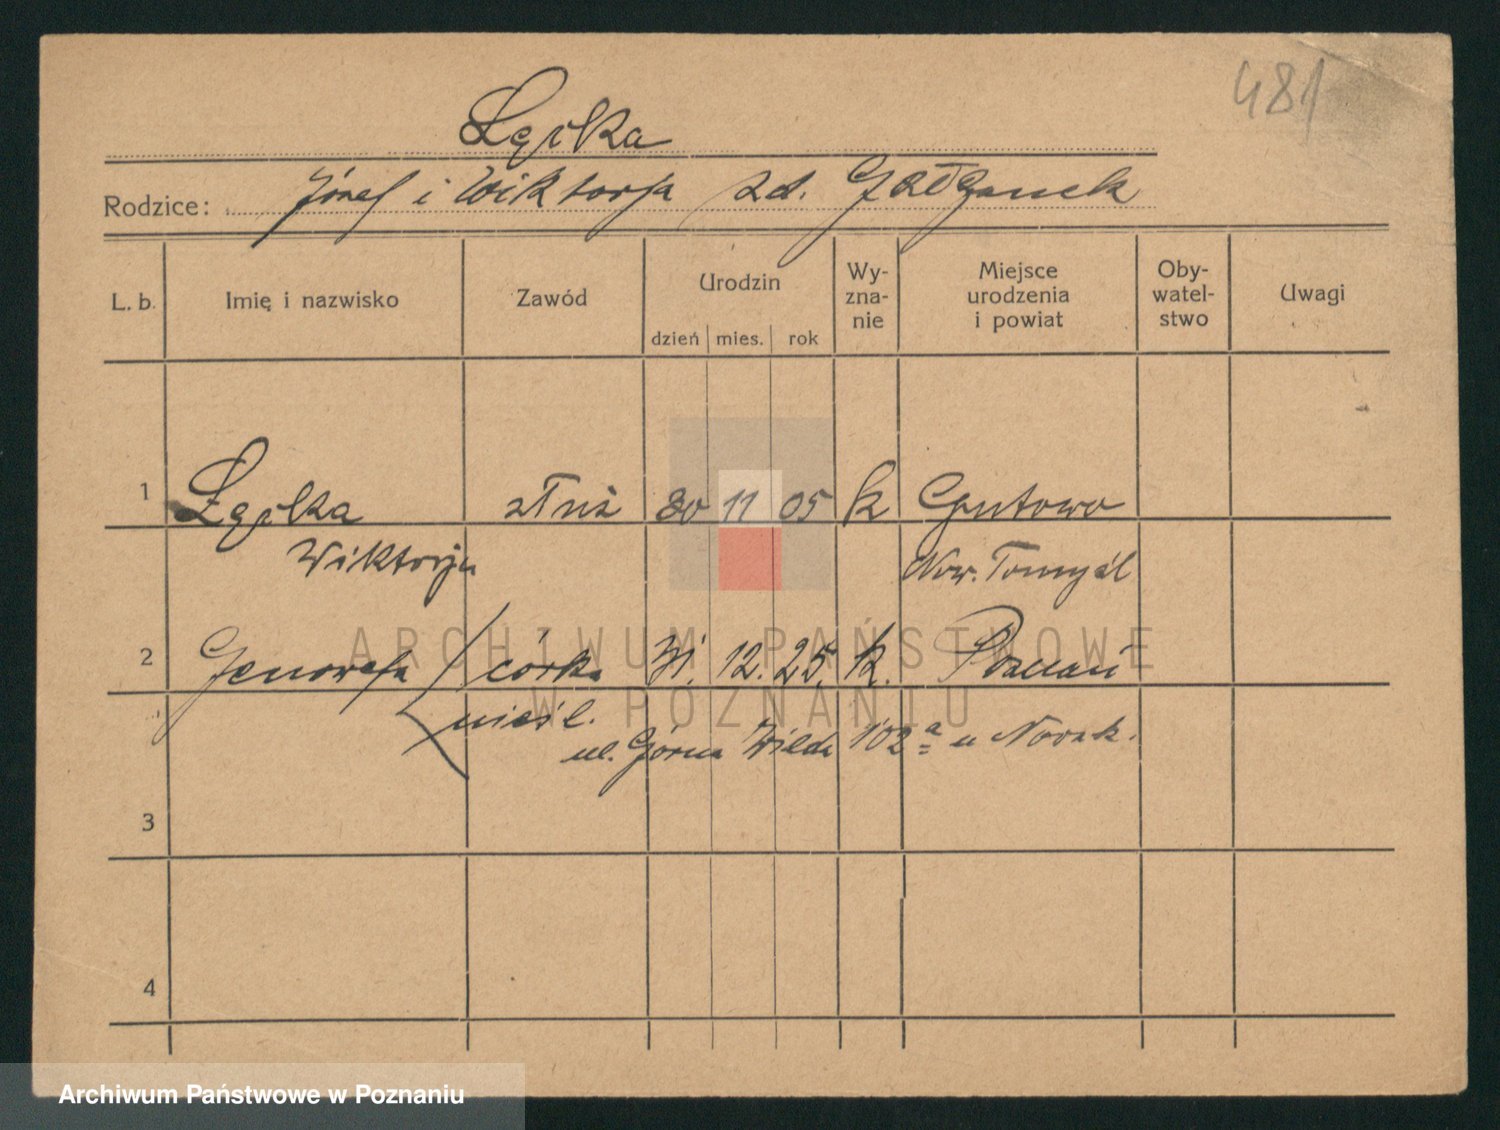 481
Łęska
Rodzice: Józef i Wiktorja zd.
L. b. Imię i nazwisko Zawód Urodzin dzień mies. rok Wy-zna-nie Miejsce urodzenia i powiat Oby-watel-stwo Uwagi
1 Łęska służ 30 11 05 k Gutowo
Wiktorja Now. Tomyśl
2 Genowefa córka 12. 25. k. Poznań
nieśl.
ul. Górna Wilda 102a u Nowak.
3
4
ARCHIWUM PAŃSTWOWE
W POZNANIU
Archiwum Państwowe w Poznaniu